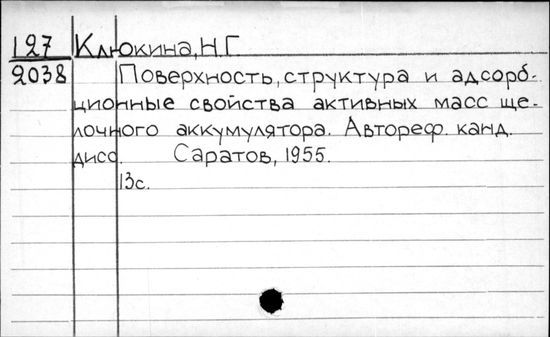 127 Клюкина, Н.Г.
2038 Поверхность, структура и адсорб-
ционные свойства активных масс ще-
лочного аккумулятора. Автореф. канд.
дисс. Саратов, 1955.
13с.